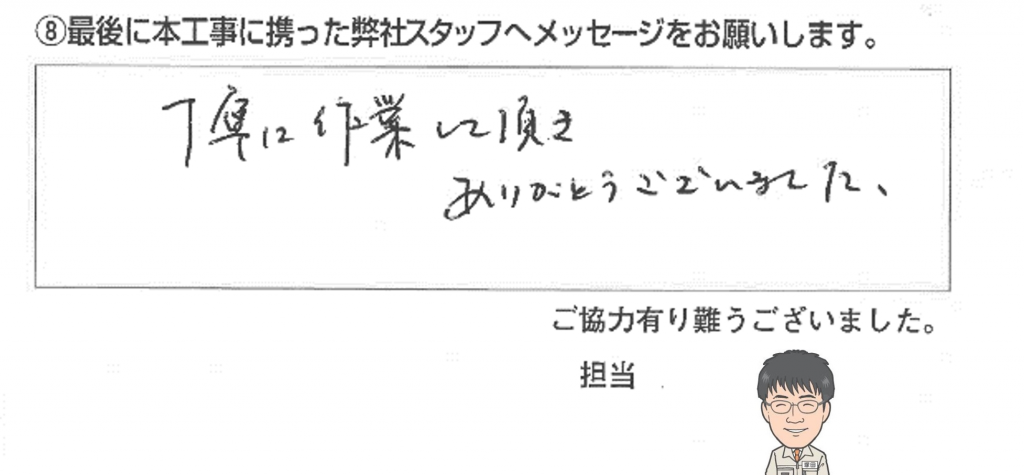 ⑧最後に本工事に携った弊社スタッフへメッセージをお願いします。
丁寧に作業して頂き
ありがとうございました、
ご協力有り難うございました。
担当